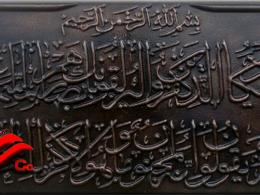 بسم الله الرحمن الرحيم
يكاد الذين كفروا ليزلقونك بابصارهم لما
ويقولون انه لمجنون وما هو الا ذكر
Co